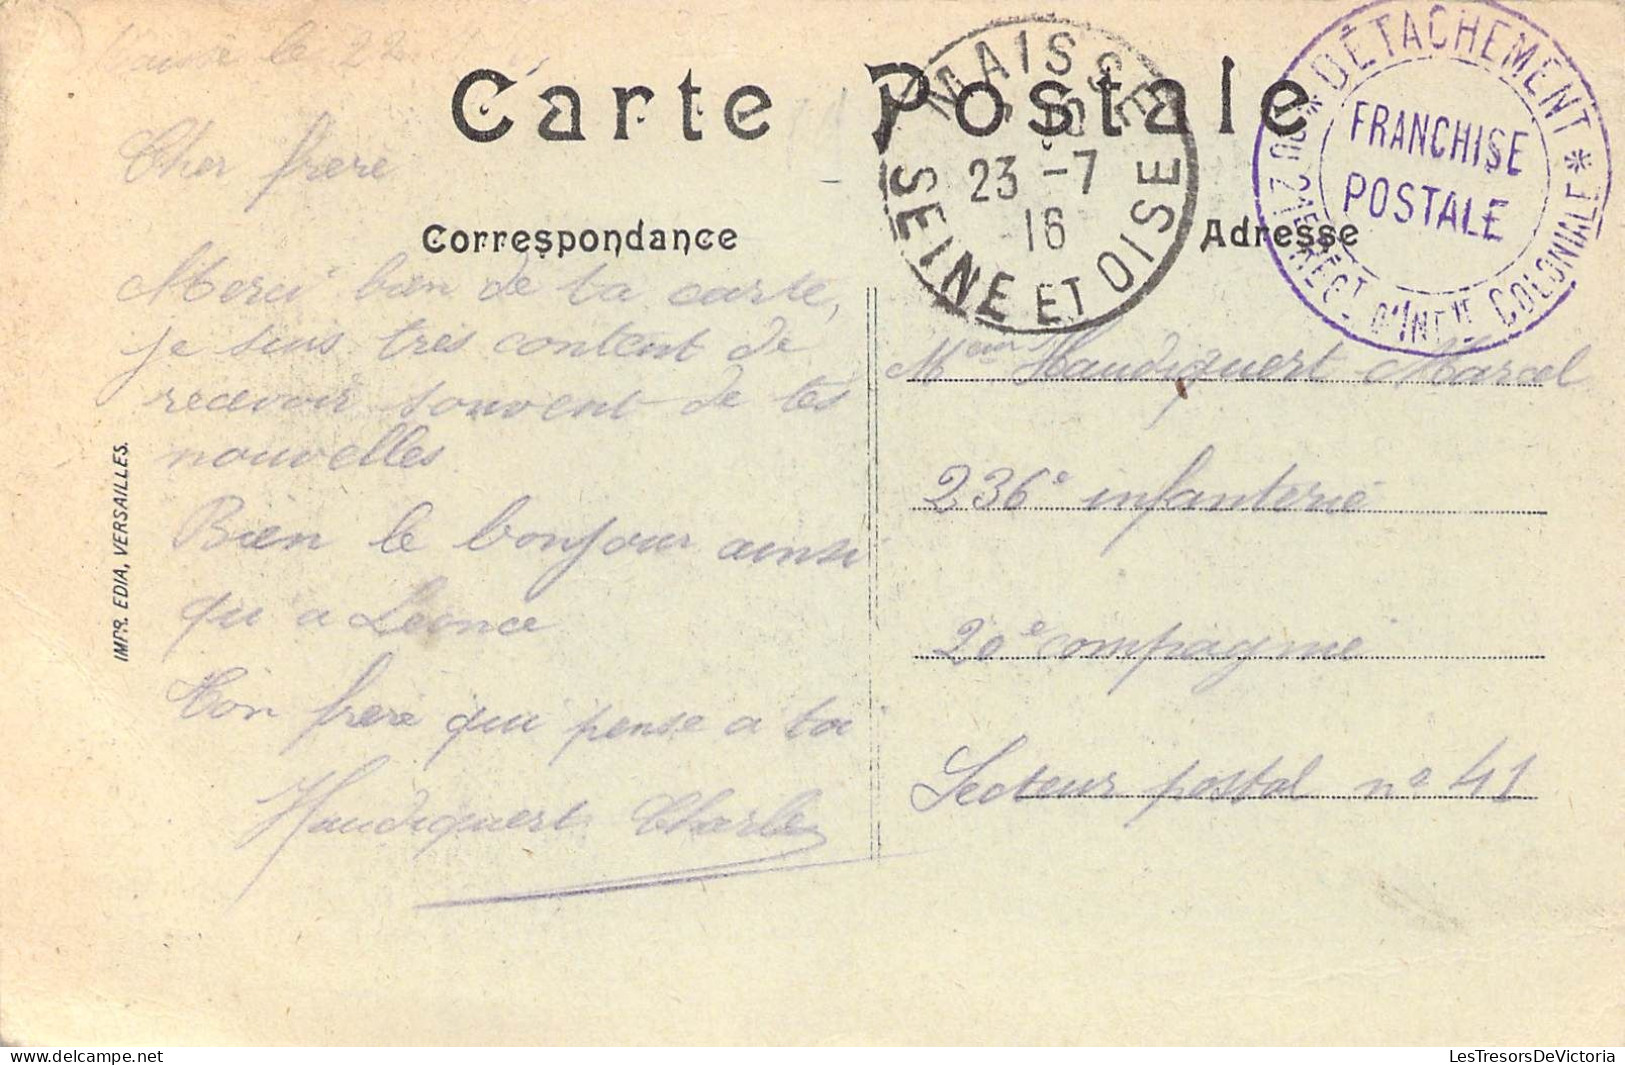 le 22
Carte Postale
MAISSE
23 -7
16
SEINE ET OISE
DÉTACHEMENT
FRANCHISE
POSTALE
COLONIALE
Cher frere
Correspondance
Adresse
Merci bien de ta carte,
je suis tres content de
recevoir souvent de tes
nouvelles
Bien le bonjour ainsi
qu'a Leonce
Ton frere qui pense a toi
Haudiquert Charles
Haudiquert Marcel
236e infanterie
20e compagnie
Secteur postal no 41
IMPR. EDIA, VERSAILLES.
LesTresorsDeVictoria